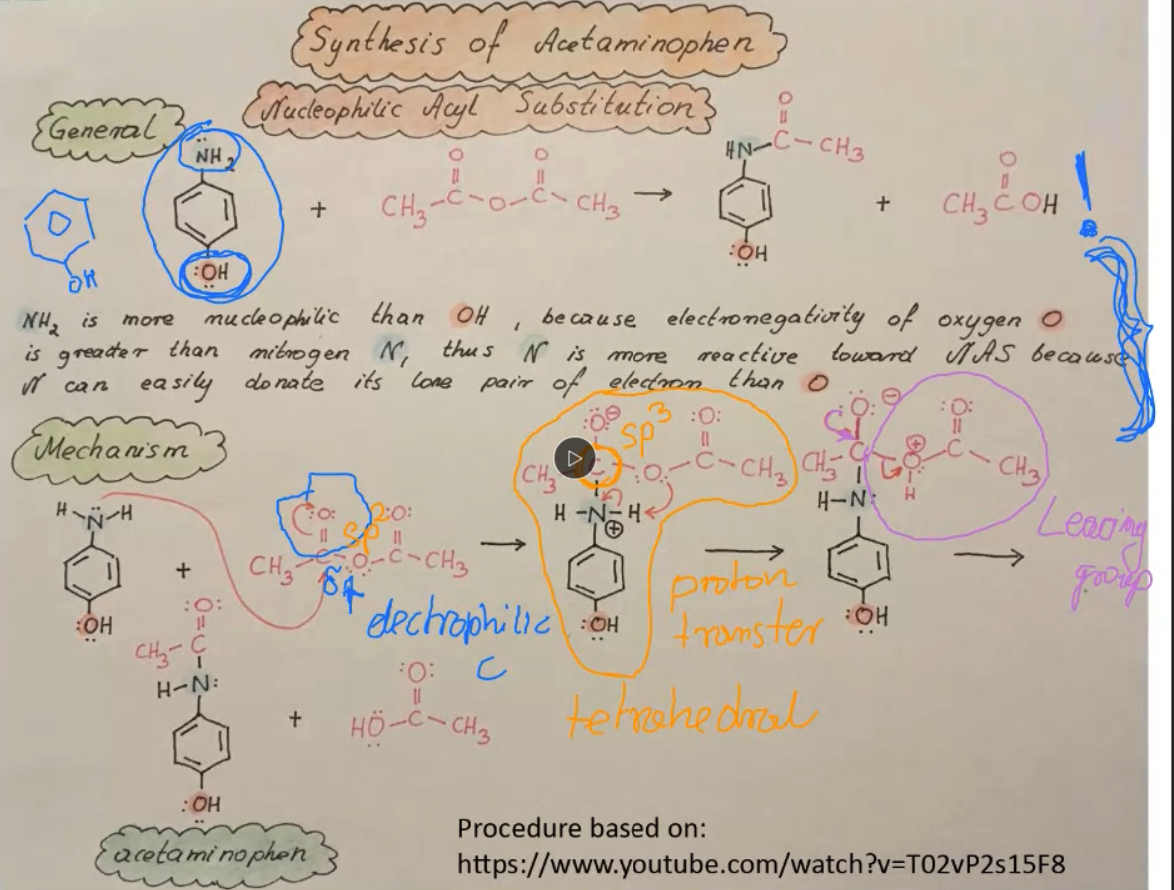 Synthesis of Acetaminophen
Nucleophilic Acyl Substitution
General
NH2
:OH
OH
+
O O
CH3 C O C CH3
→
O
HN C CH3
:OH
+
O
CH3 C OH
!
NH2 is more nucleophilic than OH, because electronegativity of oxygen O
is greater than nitrogen N, thus N is more reactive toward NAS because
N can easily donate its lone pair of electron than O
Mechanism
H N H
:OH
+
:O: :O:
CH3 C O C CH3
sp2
δ+
electrophilic
C
→
:O:⊖ :O:
sp3
CH3 C O C CH3
H N H
⊕
:OH
tetrahedral
→
proton
transfer
:O:⊖ :O:
CH3 C O C CH3
⊕
H
H-N:
:OH
Leaving
group
→
:O:
CH3 C
H-N:
:OH
+
:O:
HO C CH3
acetaminophen
Procedure based on:
https://www.youtube.com/watch?v=T02vP2s15F8